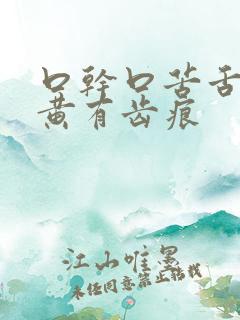 口幹口苦舌
黄有齿痕
江山唯墨
未经同意禁止转载